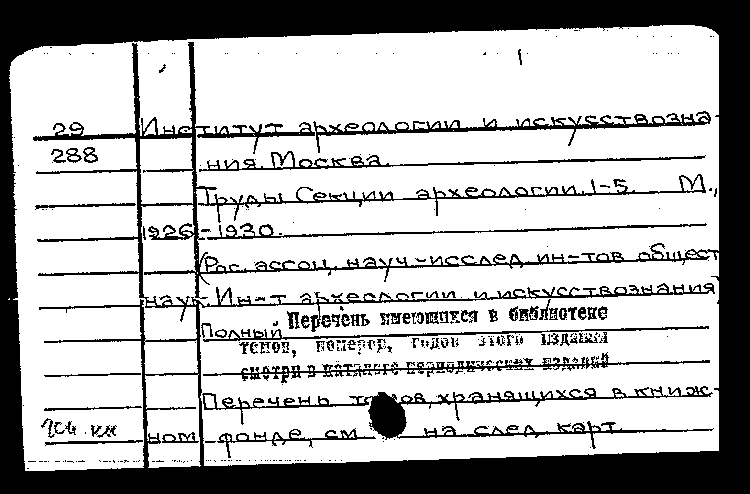 29 Институт археологии и искусствозна-
288 ния. Москва.
Труды Секции археологии. 1-5. М.,
1926-1930.
(Рос. ассоц. науч.-исслед. ин-тов общест.
наук. Ин-т археологии и искусствознания)
Полный Перечень имеющихся в библиотеке
томов, номеров, годов этого издания
смотри в каталоге периодических изданий
Перечень томов, хранящихся в книж-
ном фонде, см. на след. карт.